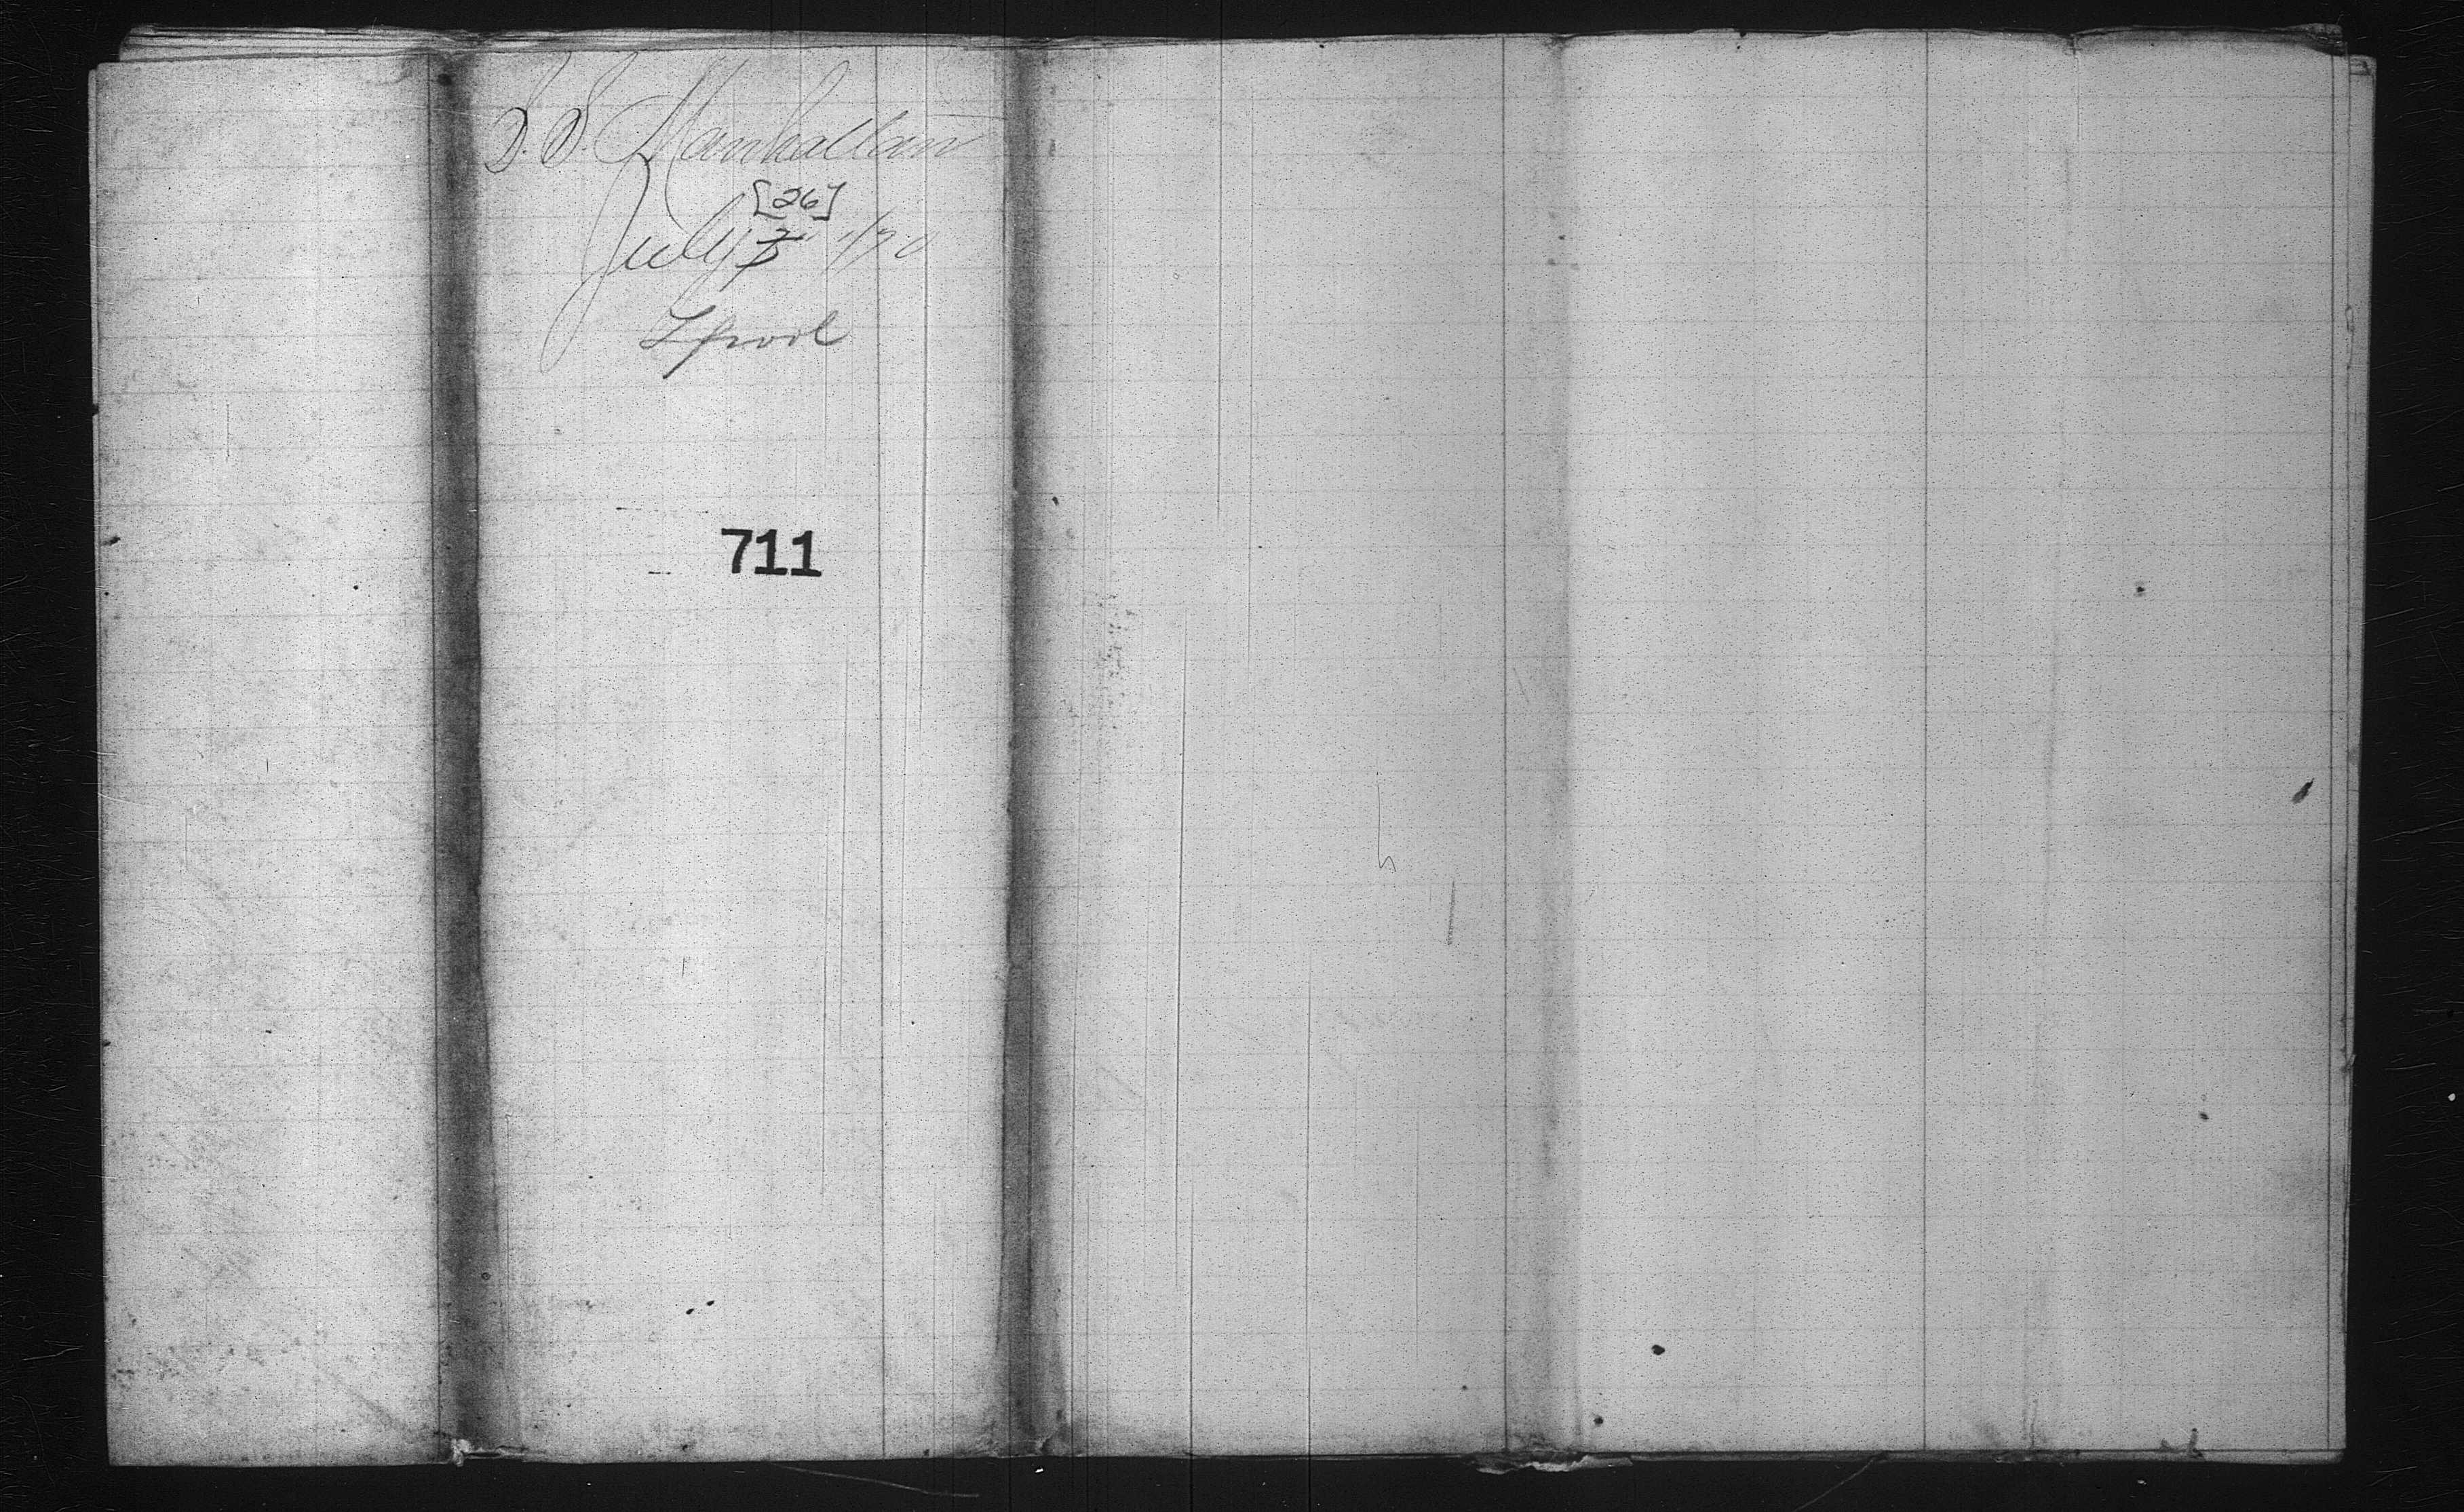 S. S. Manhattan
[26]
July 5" /70
Lpool
711